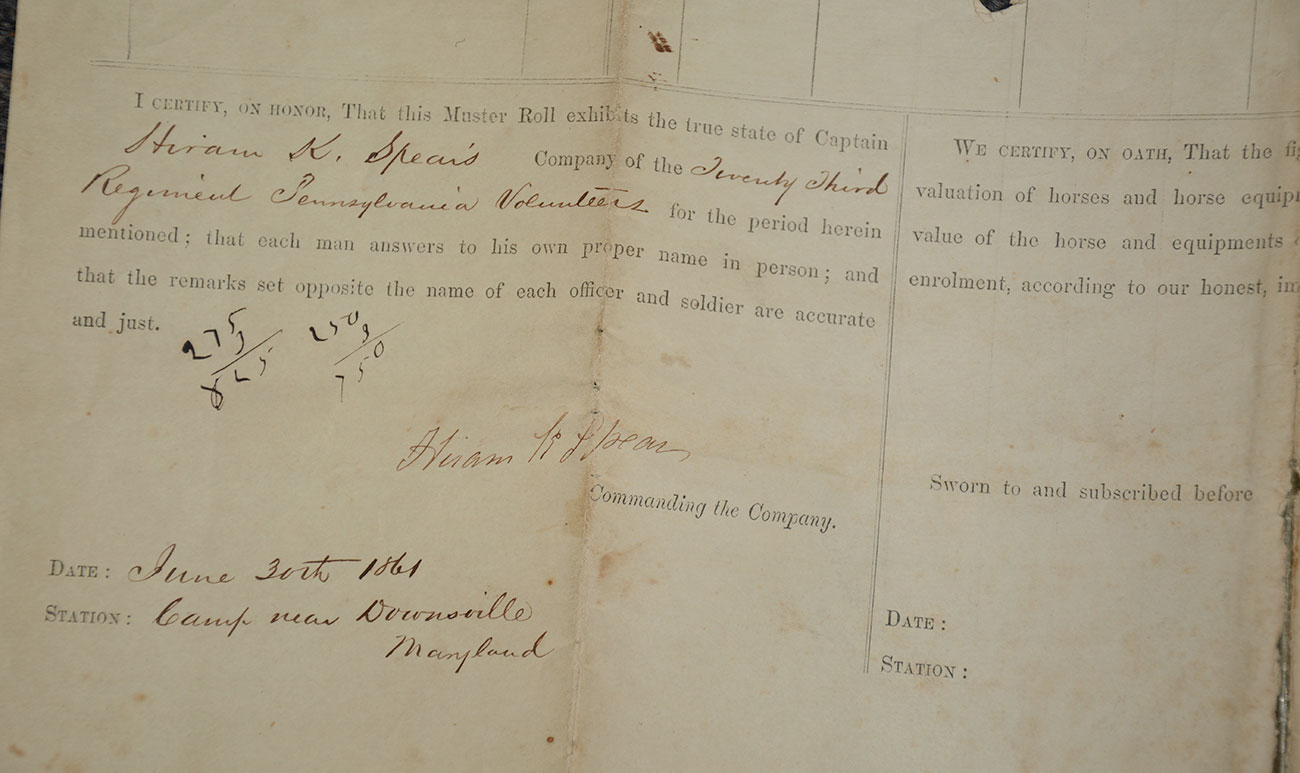 I CERTIFY, ON HONOR, That this Muster Roll exhibits the true state of Captain
Hiram K. Spear's Company of the Twenty Third
Regiment Pennsylvania Volunteers for the period herein
mentioned; that each man answers to his own proper name in person; and
that the remarks set opposite the name of each officer and soldier are accurate
and just.
275 250
3 3
825 750
Hiram K Spear
Commanding the Company.
DATE: June 30th 1861
STATION: Camp near Downsville
Maryland
WE CERTIFY, ON OATH, That the
valuation of horses and horse
value of the horse and equipments
enrolment, according to our honest,
Sworn to and subscribed before
DATE:
STATION: